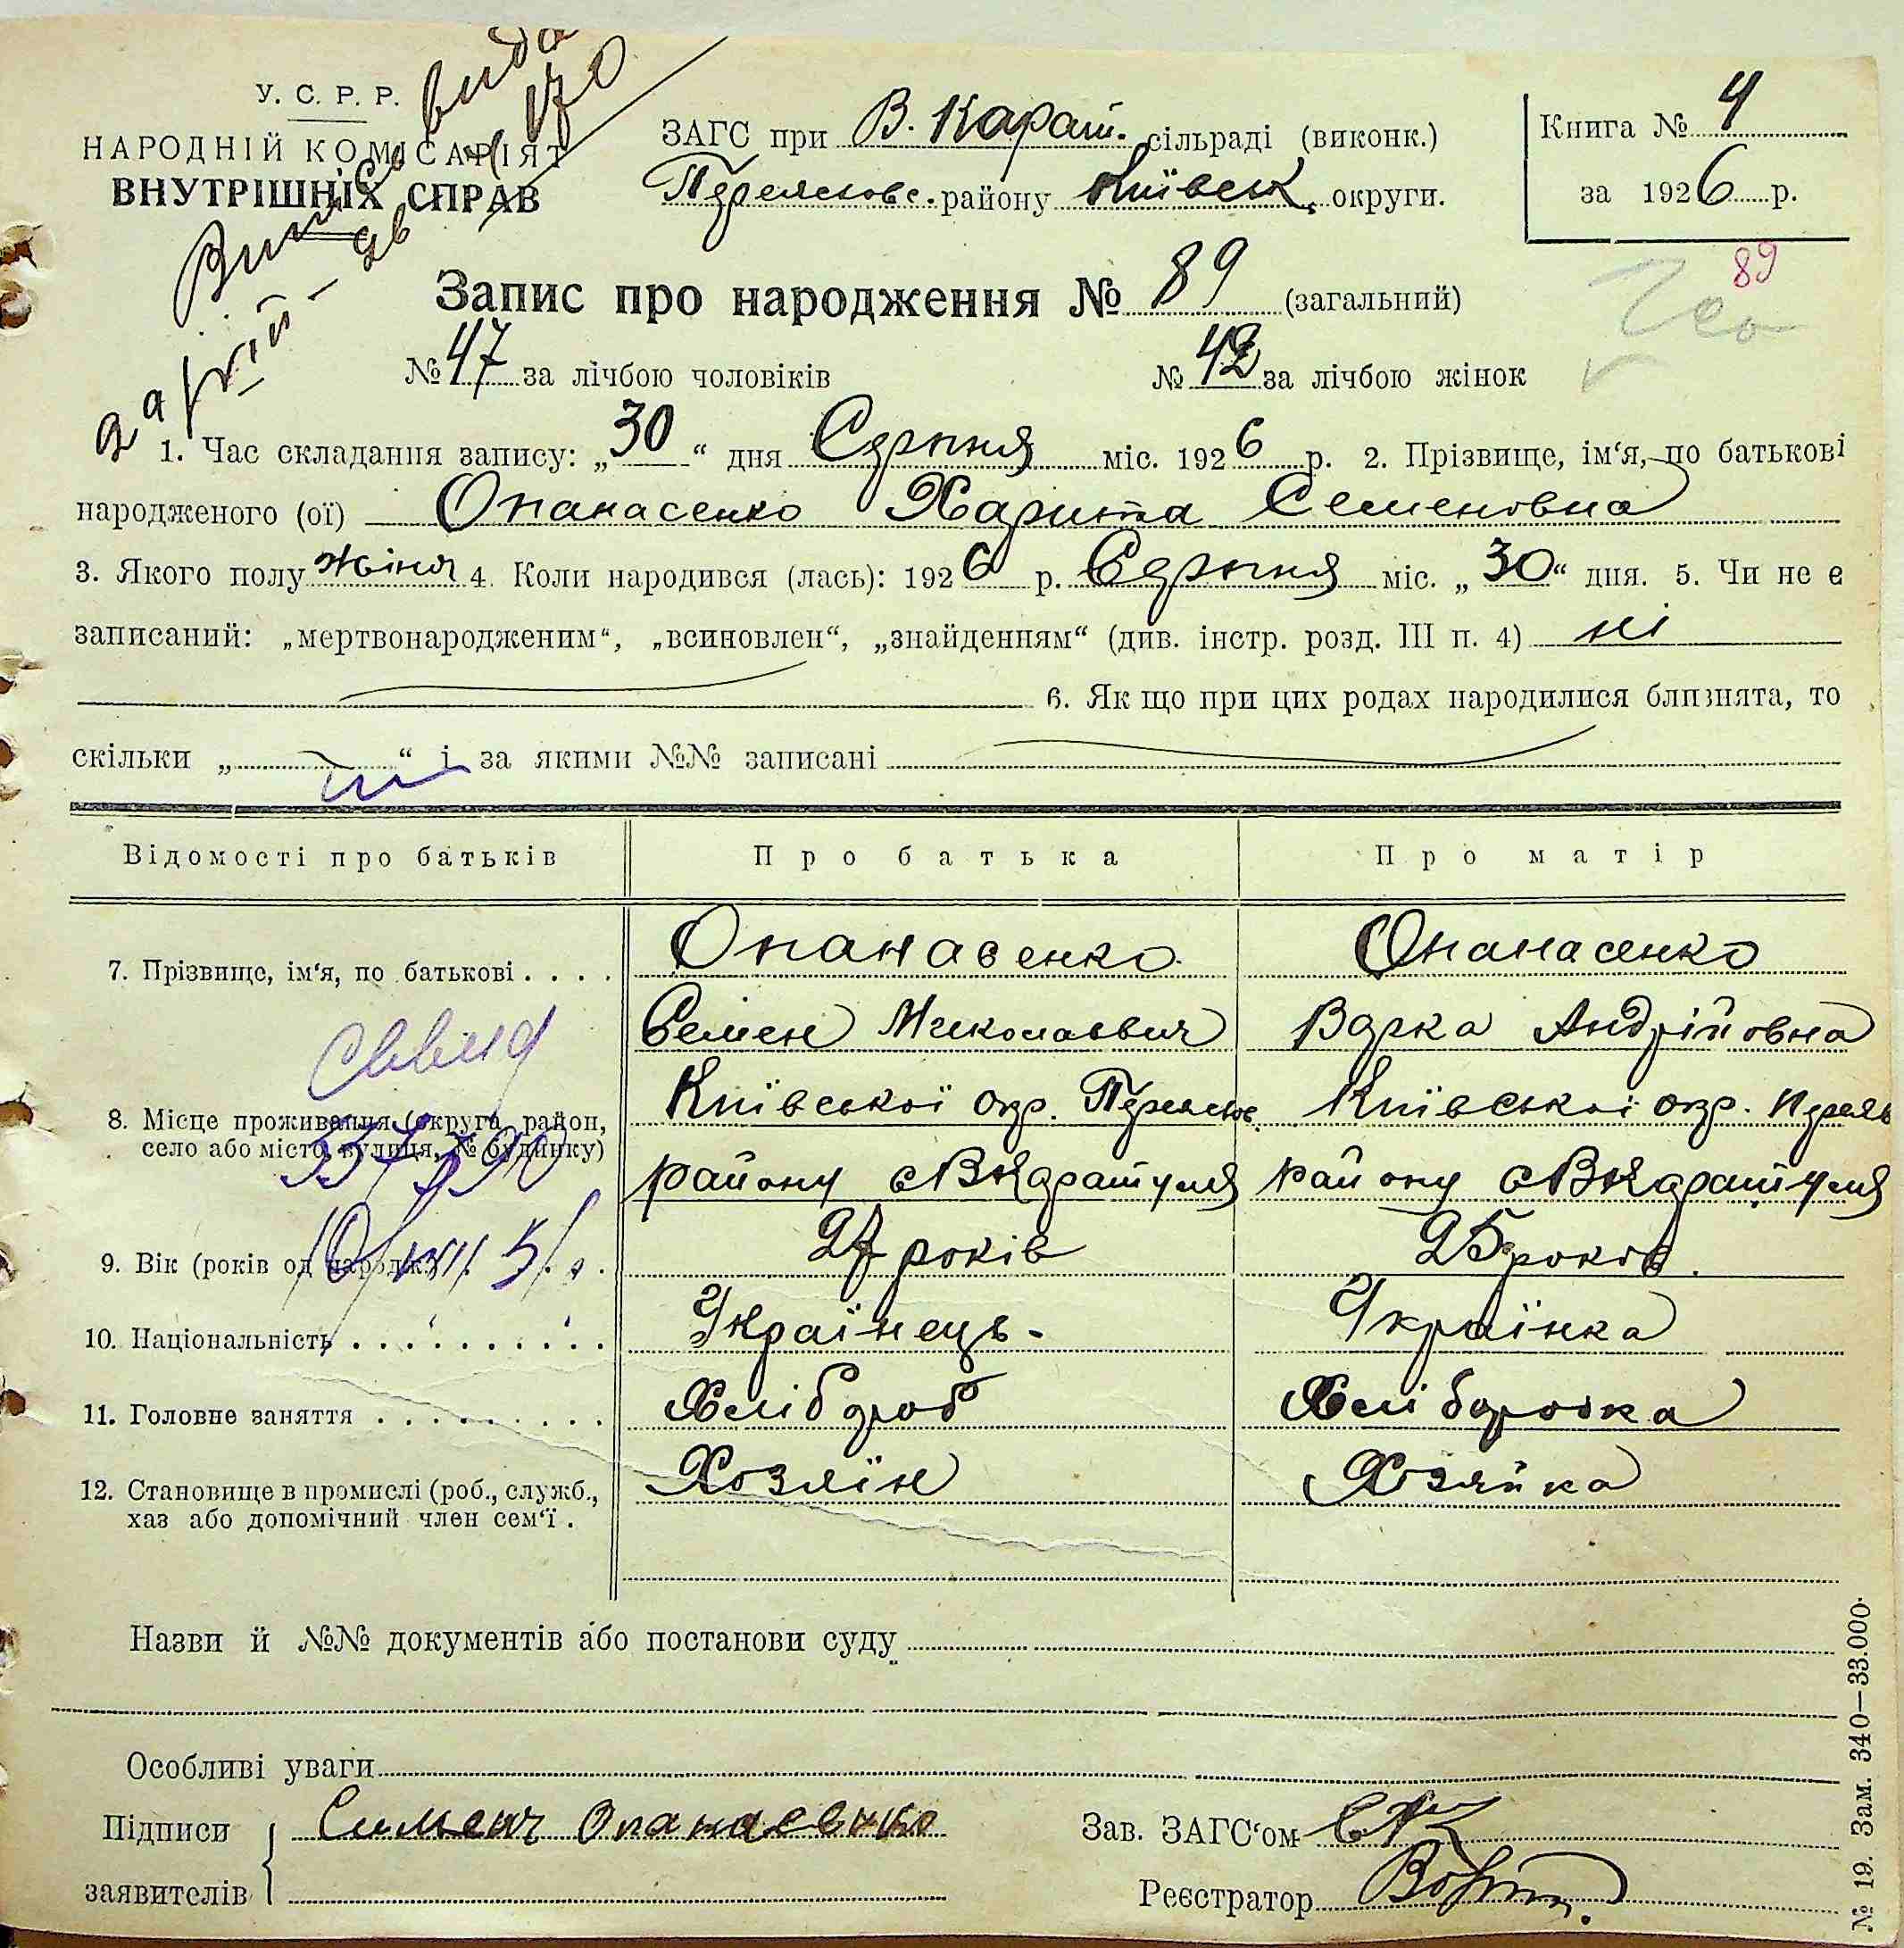 У. С. Р. Р.
НАРОДНІЙ КОМІСАРІЯТ
ВНУТРІШНІХ СПРАВ
ЗАГС при В. Карат. сільраді (виконк.)
Переясловс. району Київськ. округи.
Книга № 4
за 1926 р.
89
Запис про народження № 89 (загальний)
№ 47 за лічбою чоловіків № 42 за лічбою жінок
1. Час складання запису: „30“ дня Серпня міс. 1926 р. 2. Прізвище, ім‘я, по батькові
народженого (ої) Опанасенко Харита Семеновна
3. Якого полу жіноч 4. Коли народився (лась): 1926 р. Серпня міс. „30“ дня. 5. Чи не є
записаний: „мертвонародженим“, „всиновлен“, „знайденням“ (див. інстр. розд. III п. 4) ні
6. Як що при цих родах народилися близнята, то
скільки „ “ і за якими №№ записані
Відомості про батьків Про батька Про матір
7. Прізвище, ім‘я, по батькові . . . . Опанасенко Опанасенко
Семен Миколаєвич Варка Андрійовна
8. Місце проживання (округа, район, село або місто, вулиця, № будинку) Київської окр. Переяслов. Київської окр. Переяв
району с В Каратуля району с В Каратуля
9. Вік (років од народж.) 27 років 25 років.
10. Національність . . . . . . . . . . Українець. Українка
11. Головне заняття . . . . . . . . . Хлібороб Хліборобка
12. Становище в промислі (роб., служб., хаз або допомічний член сем‘ї . Хозяїн Хозяйка
Назви й №№ документів або постанови суду
Особливі уваги
Підписи заявителів Симеон Опанасенко
Зав. ЗАГС‘ом
Реєстратор
№ 19. Зам. 340—33.000.